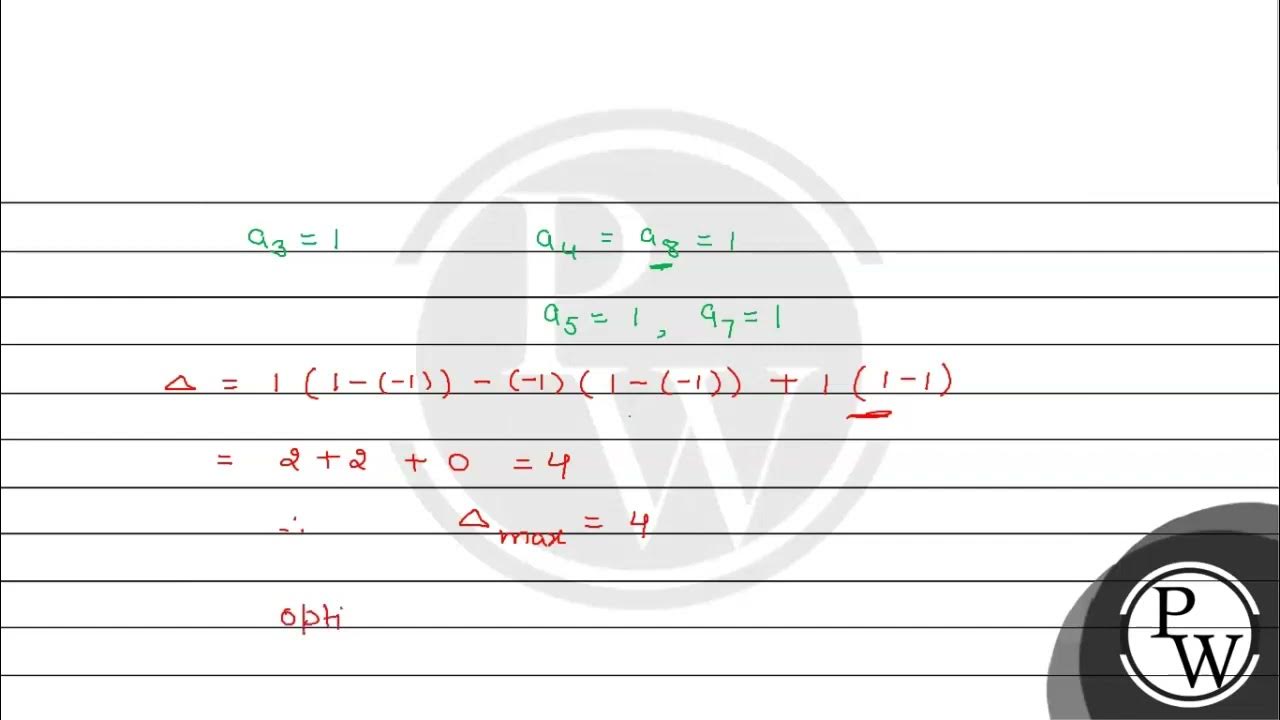 a₃ = 1 a₄ = a₈ = 1
a₅ = 1, a₇ = 1
Δ = 1 (1-(-1)) - (-1) (1-(-1)) + 1 (1-1)
= 2+2 + 0 = 4
∴ Δmax = 4
opti
PW
PW